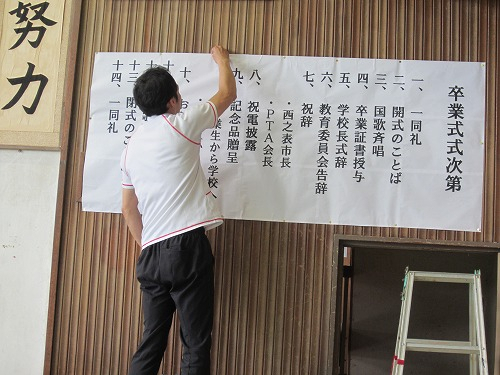 卒業式式次第
一、一同礼
二、開式のことば
三、国歌斉唱
四、卒業証書授与
五、学校長式辞
六、教育委員会告辞
七、祝辞
・西之表市長
・PTA会長
八、祝電披露
九、記念品贈呈
業生から学校へ
十、お
十
十
十三、閉式のこ
十四、一同礼
努力